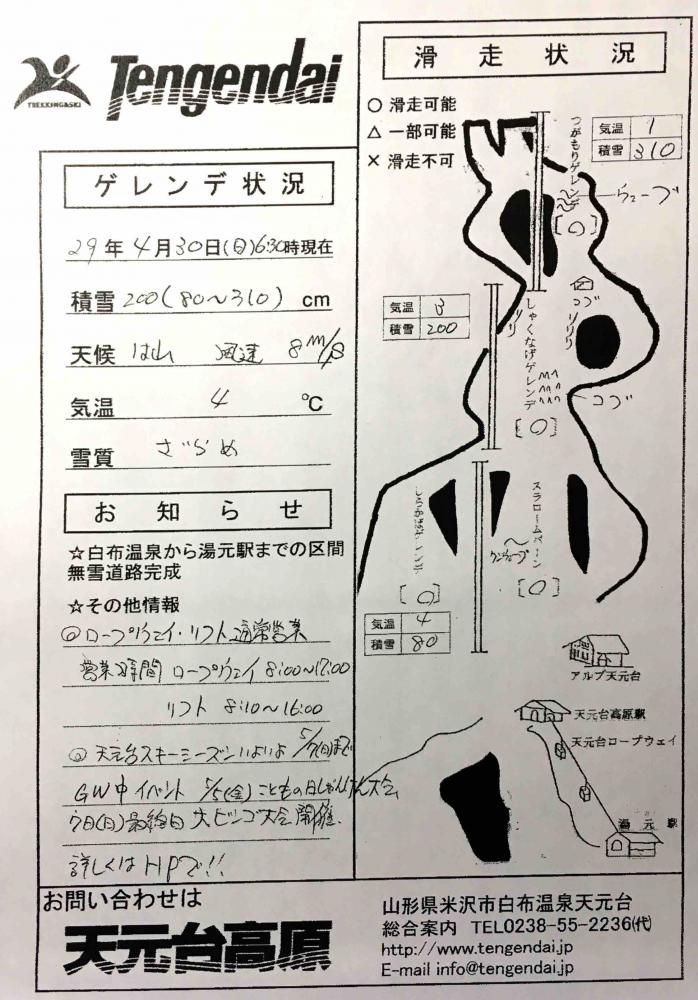 TREKKING&SKI
Tengendai
ゲレンデ状況
29年4月30日(日)6:30時現在
積雪 200(80〜310) cm
天候 はれ 風速 8m/s
気温 4 ℃
雪質 ざらめ
お知らせ
☆白布温泉から湯元駅までの区間
無雪道路完成
☆その他情報
◎ロープウェイ・リフト通常営業
営業時間 ロープウェイ 8:00〜17:00
リフト 8:10〜16:00
◎天元台スキーシーズンいよいよ 5/7(日)まで
GW中 イベント 5/5(金) こどもの日じゃんけん大会
7日(日)最終日 大ビンゴ大会開催
詳しくはHPで!!
滑走状況
○ 滑走可能
△ 一部可能
× 滑走不可
気温 1
積雪 310
つがもりゲレンデ
[○]
ウェーブ
コブ
気温 3
積雪 200
しゃくなげゲレンデ
コブ
[○]
スラロームバーン
[○]
[○]
気温 4
積雪 80
アルブ天元台
天元台高原駅
天元台ロープウェイ
湯元駅
お問い合わせは
天元台高原
山形県米沢市白布温泉天元台
総合案内 TEL0238-55-2236(代)
http://www.tengendai.jp
E-mail info@tengendai.jp